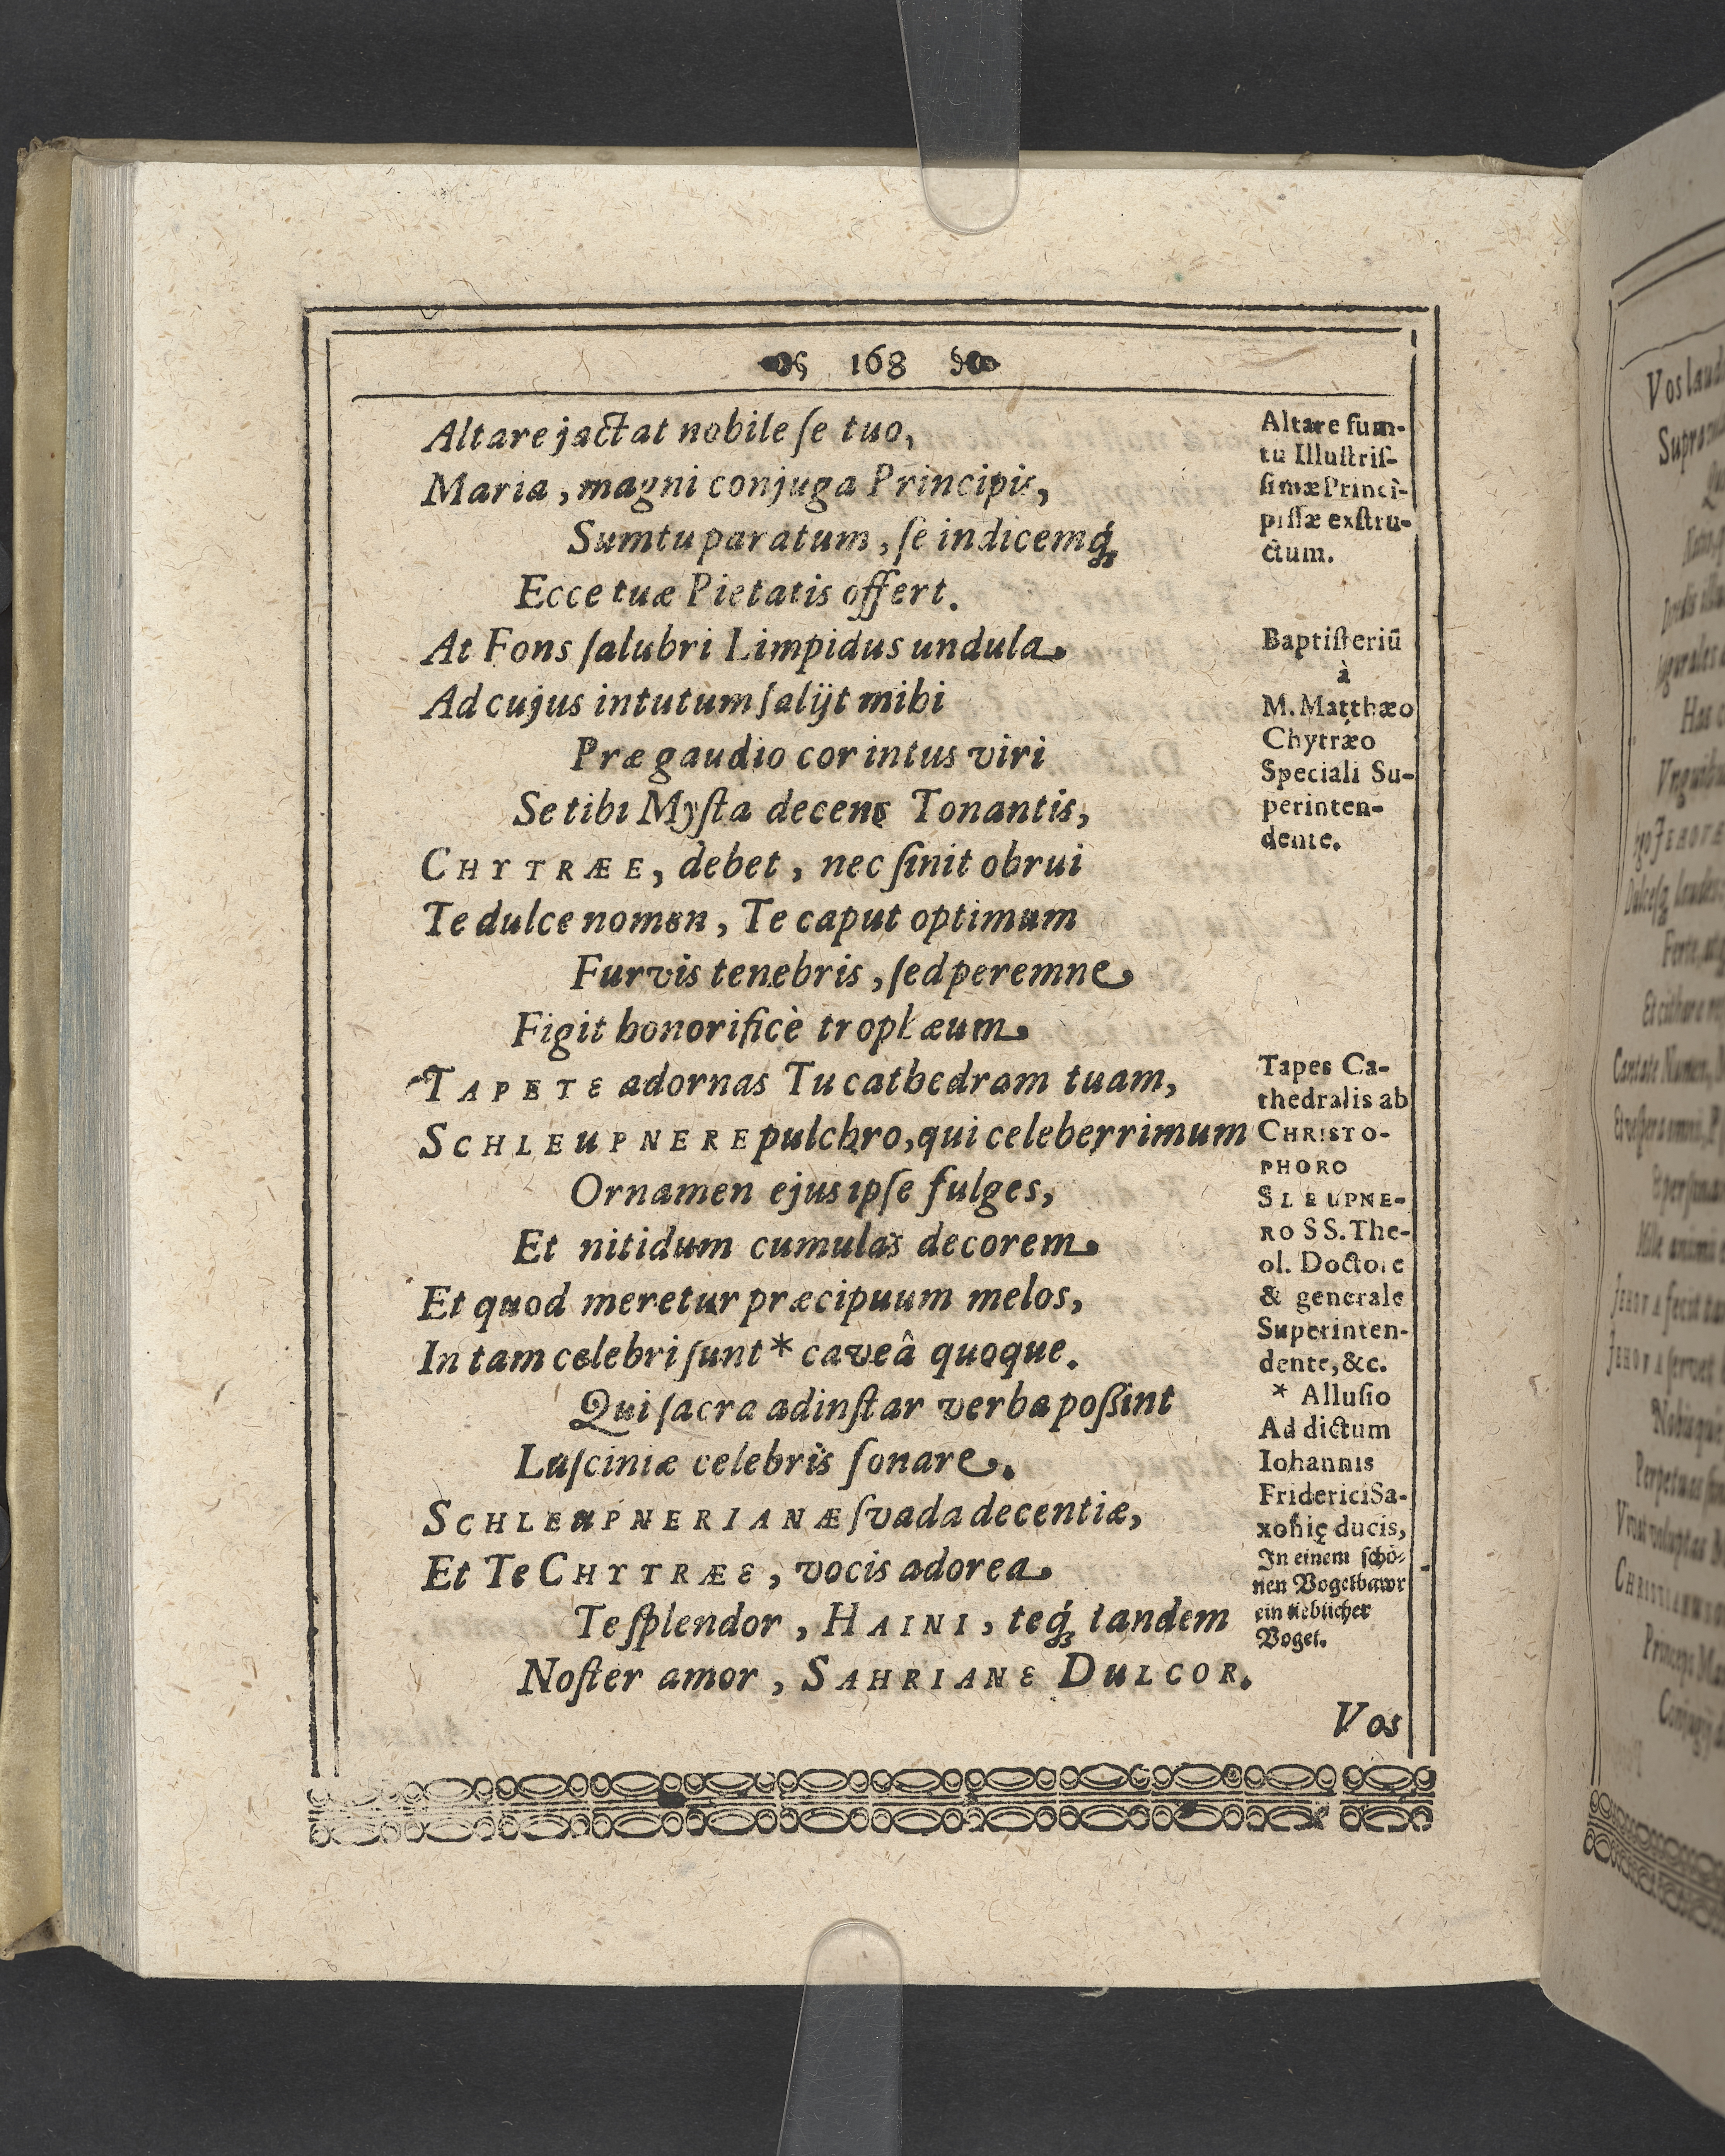 168
Altare jactat nobile ſe tuo,
Maria, magni conjuga Principis,
Sumtu paratum, ſe indicemq́;
Ecce tuæ Pietatis offert.
At Fons ſalubri Limpidus undula
Ad cujus intutum ſalijt mihi
Præ gaudio cor intus viri
Se tibi Myſta decens Tonantis,
CHYTRÆE, debet, nec ſinit obrui
Te dulce nomen, Te caput optimum
Furvis tenebris, ſed peremne
Figit honorificè trophæum.
TAPETE adornas Tu cathedram tuam,
SCHLEUPNERE pulchro, qui celeberrimum
Ornamen ejus ipſe fulges,
Et nitidum cumulas decorem.
Et quod meretur præcipuum melos,
In tam celebri ſunt * caveâ quoque.
Qui ſacra ad inſtar verba poßint
Luſciniæ celebris ſonare.
SCHLEUPNERIANÆ ſvada decentiæ,
Et Te CHYTRÆE, vocis adorea
Te ſplendor, HAINI, teq́; tandem
Noſter amor, SAHRIANE DULCOR.
Vos
Altare ſum-
tu Illuſtriſ-
ſimæ Princi-
piſſæ exſtru-
ctum.
Baptiſteriū
à
M. Matthæo
Chytræo
Speciali Su-
perinten-
dente.
Tapes Ca-
thedralis ab
CHRISTO-
PHORO
SLEUPNE-
RO SS. The-
ol. Doctore
& generale
Superinten-
dente, &c.
* Alluſio
Ad dictum
Iohannis
Friderici Sa-
xonię ducis,
In einem ſchö-
nen Vogelbawr
ein lieblicher
Vogel.